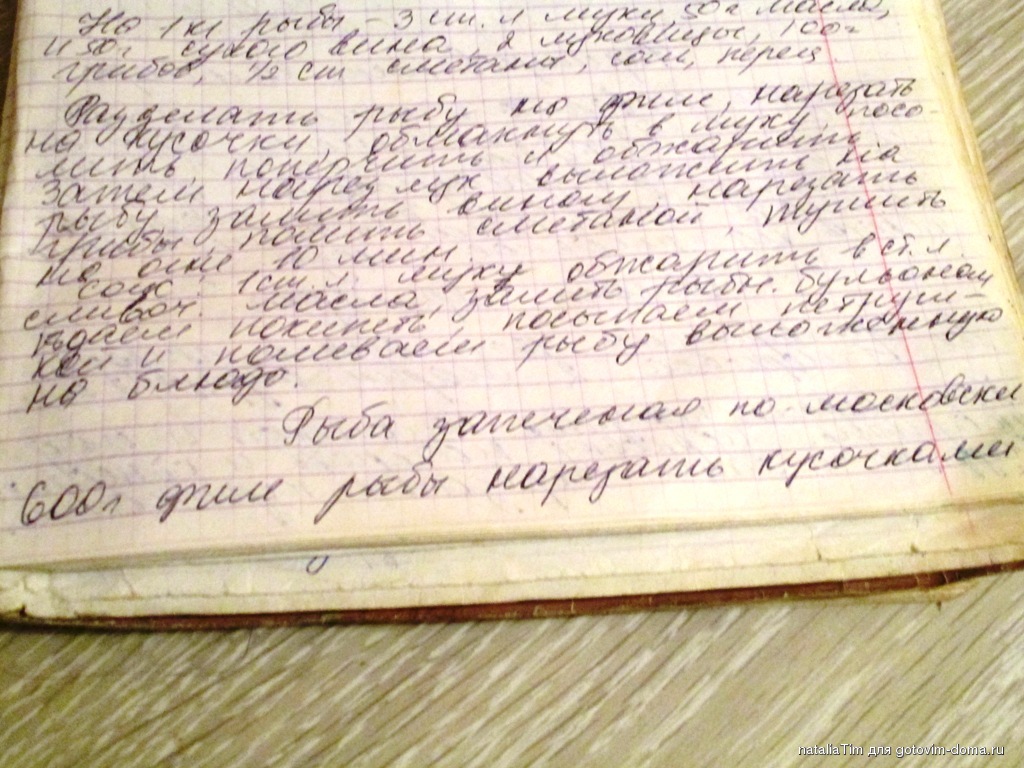 На 1 кг рыбы - 3 ст. л муки 50г масла,
150г. сухого вина, 2 луковицы, 100г
грибов, 1/2 ст сметаны, соли, перец
Разделать рыбу на филе, нарезать
на кусочки, обмакнуть в муку посо-
лить, поперчить и обжарить
Затем нарез лук выложить на
рыбу залить вином, нарезать
грибы, полить сметаной, тушить
на огне 10 мин.
Соус. 1 ст. л. муки обжарить в ст. л.
сливоч. масла, залить рыбн. бульоном
даем покипеть, посыпаем петруш-
кой и поливаем рыбу выложенную
на блюдо.
Рыба запеченая по-московски
600г филе рыбы нарезать кусочками
nataliaTim для gotovim-doma.ru